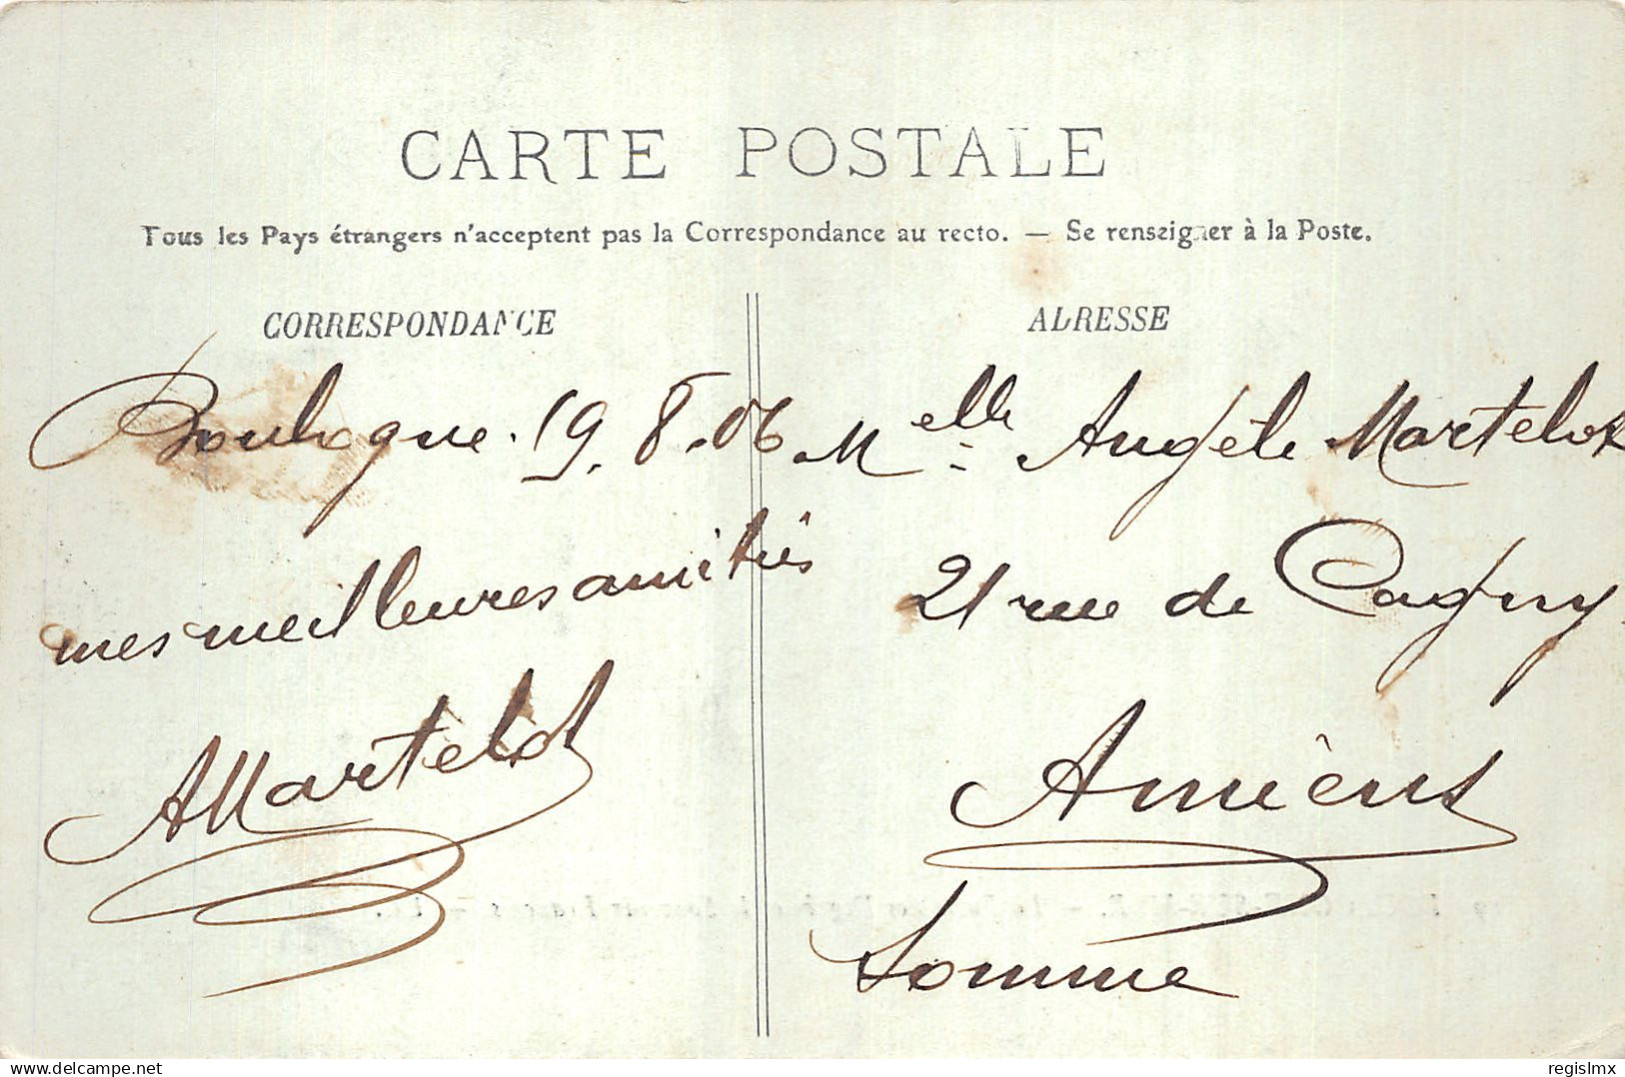 CARTE POSTALE
Tous les Pays étrangers n'acceptent pas la Correspondance au recto. — Se renseigner à la Poste.
CORRESPONDANCE
Boulogne. 19. 8. 06
mes meilleures amitiés
AMartelot
ADRESSE
Melle Angèle Martelot
21 rue de Cagny
Amiens
Somme
delcampe.net
regislmx